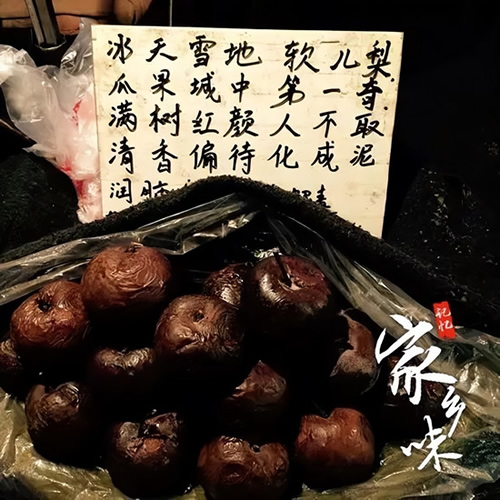 冰天雪地软儿梨
瓜果城中第一奇
满树红颜人不取
清香偏待化成泥
润肺
记忆
家乡味